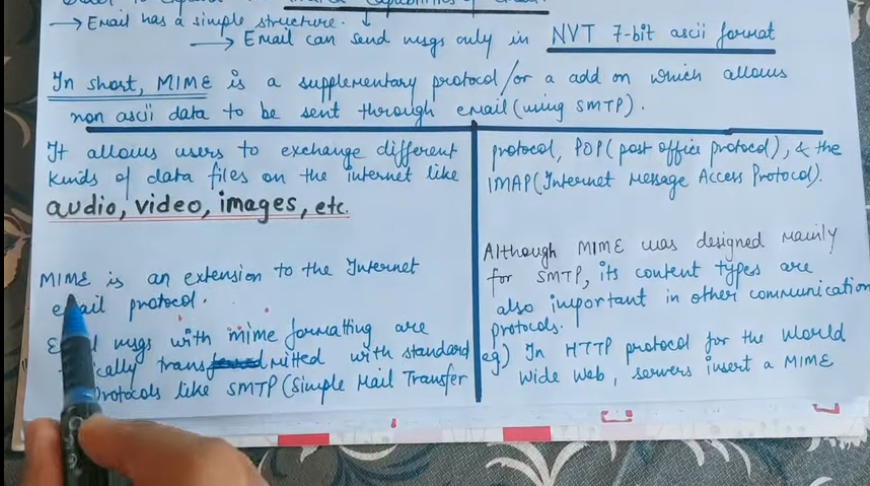 → Email has a simple structure. ↓
→ Email can send msgs only in NVT 7-bit ascii format
In short, MIME is a supplementary protocol/or a add on which allows
non ascii data to be sent through email (using SMTP).
It allows users to exchange different
kinds of data files on the internet like
audio, video, images, etc.
MIME is an extension to the Internet
email protocol.
msgs with mime formatting are
transmitted with standard
protocols like SMTP (Simple Mail Transfer
protocol, POP (post office protocol), & the
IMAP (Internet Message Access Protocol).
Although MIME was designed mainly
for SMTP, its content types are
also important in other communication
protocols.
eg) In HTTP protocol for the World
Wide Web, servers insert a MIME